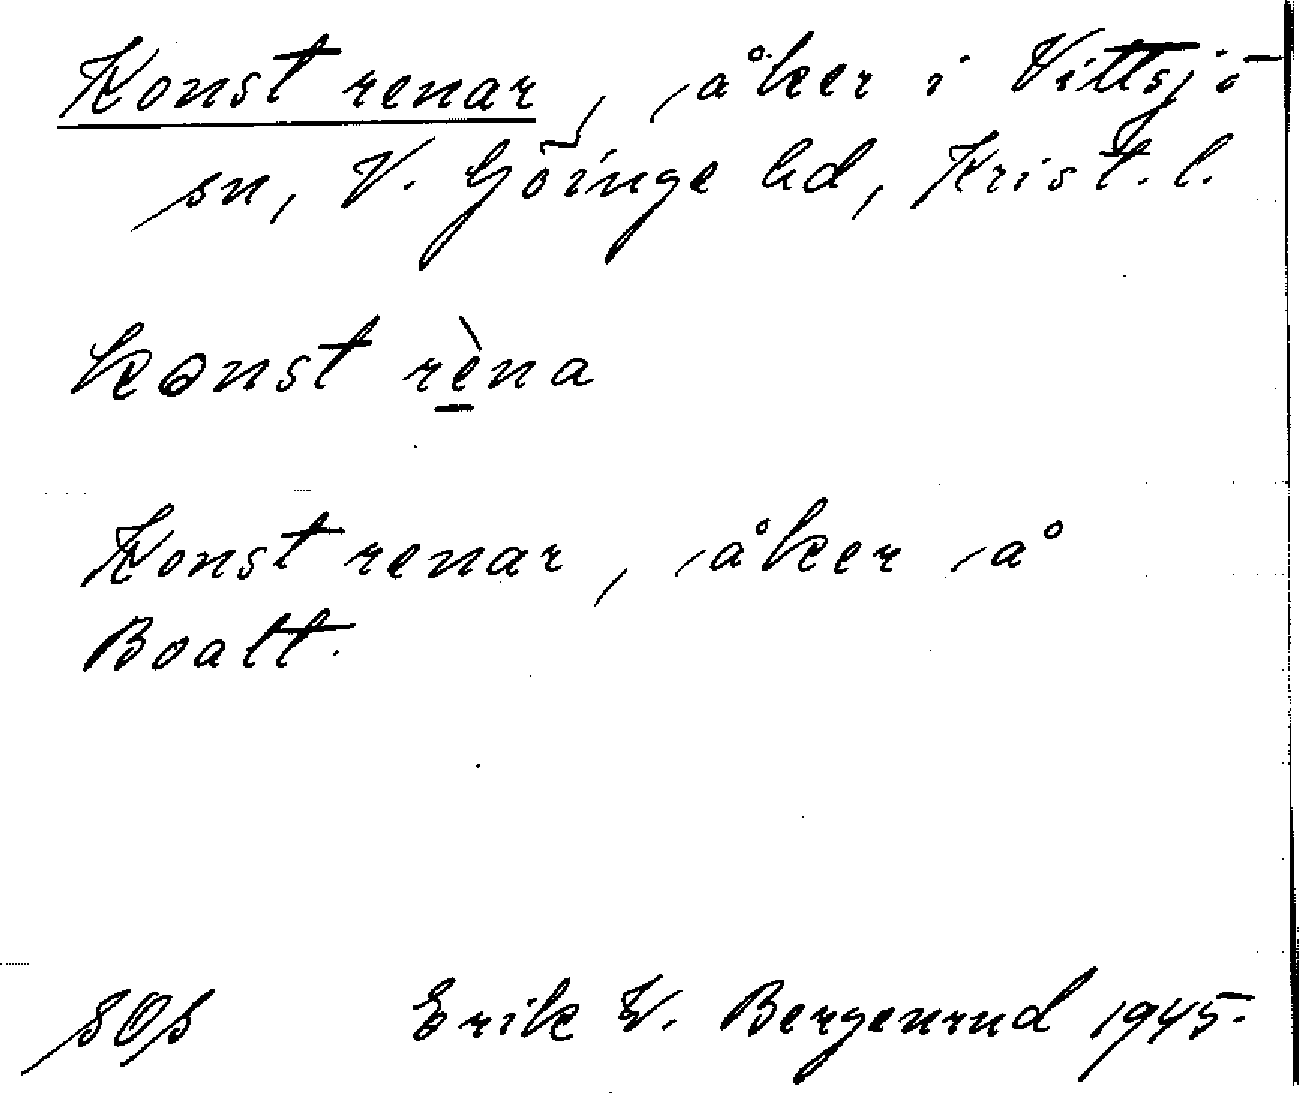 Konst renar, åker i Vittsjö
sn, V. Göinge hd, Krist. l.
kɔnst rèna
Konst renar, åker å
Boalt.
Erik W. Bergenrud 1945.